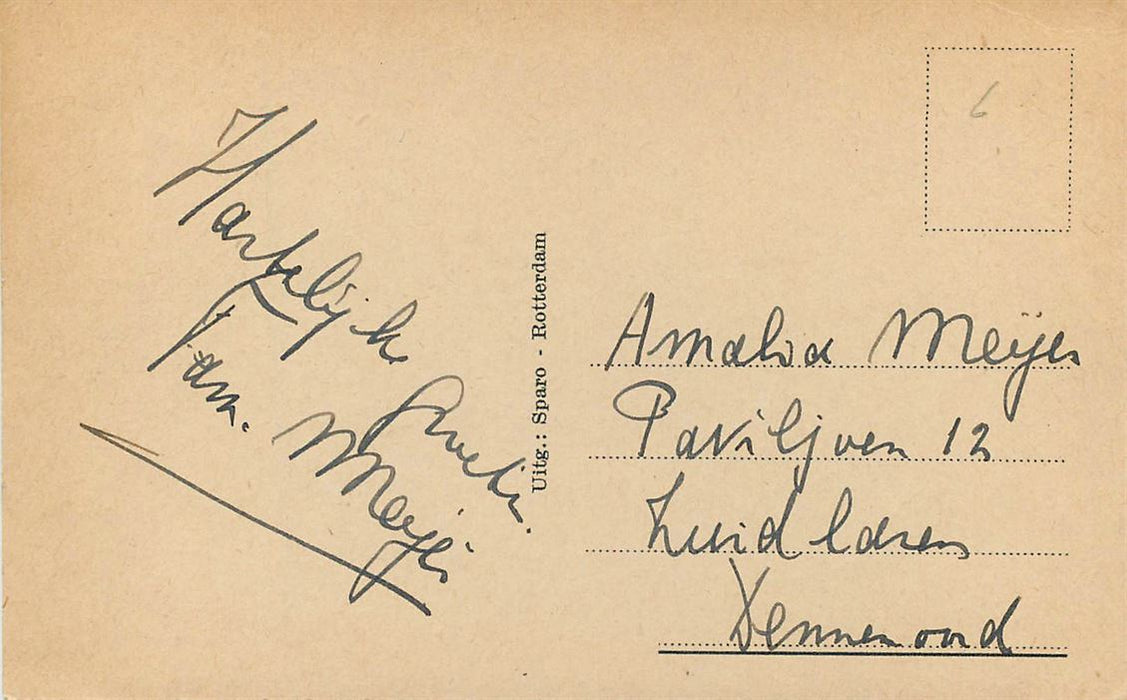 Hartelijke Groeten.
Fam. Meijer
Uitg.: Sparo - Rotterdam
6
Amalia Meijer
Paviljoen 12
Zuid Laren
Dennenoord